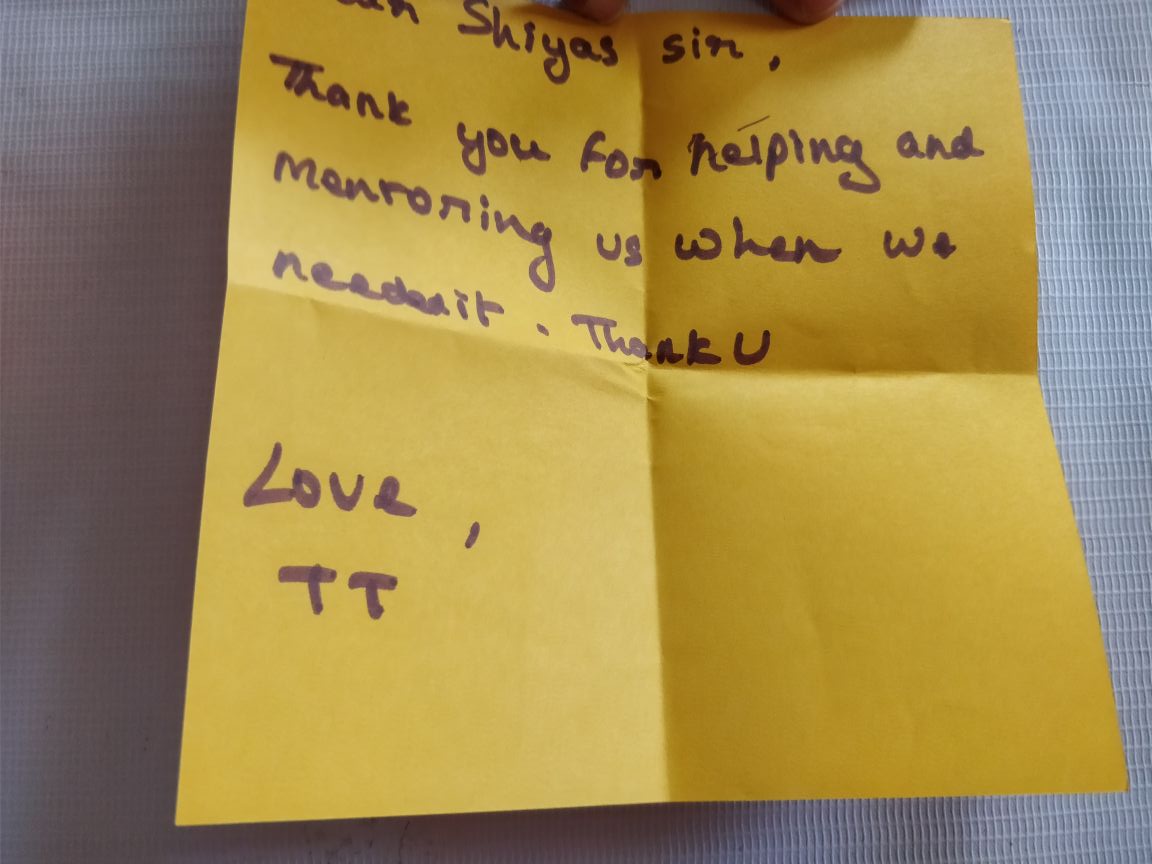 Shiyas sir,
Thank you for helping and
Mentoring us when we
needed it. Thank U
Love,
TT